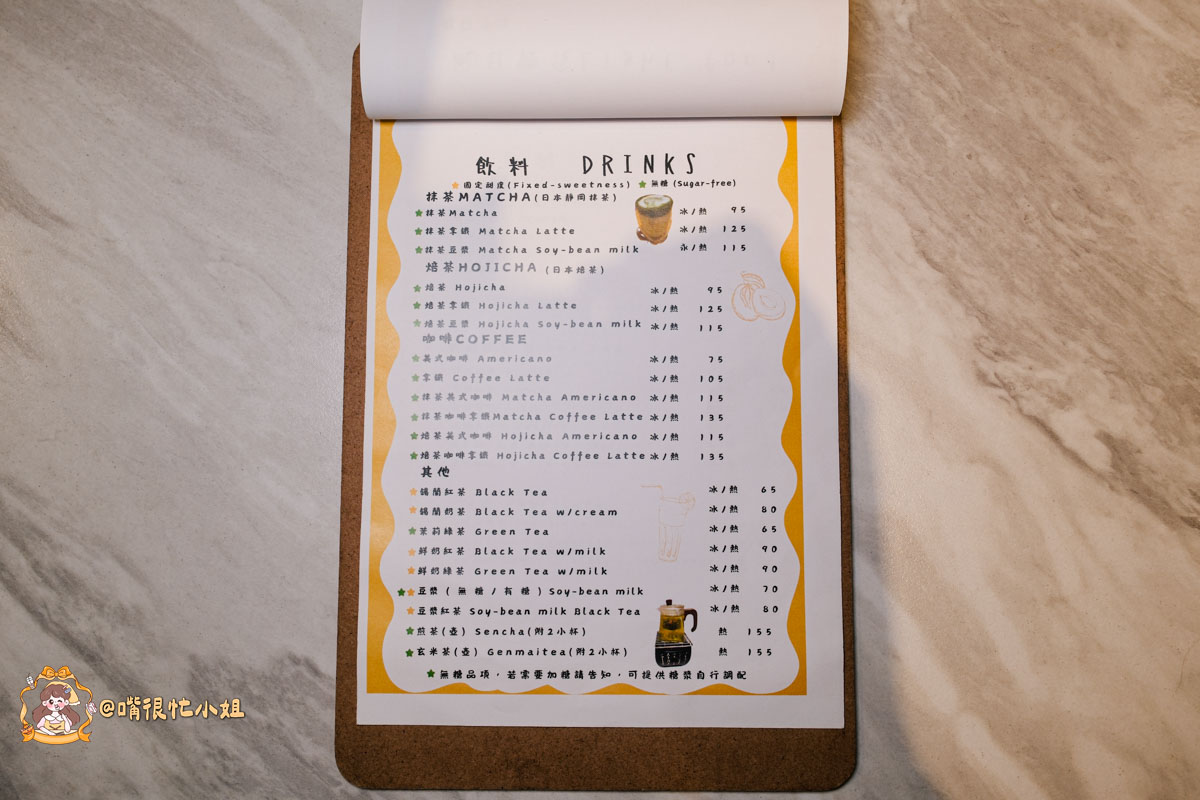 飲料 DRINKS
★固定甜度(Fixed-sweetness) ★無糖(Sugar-free)
抹茶MATCHA(日本靜岡抹茶)
★抹茶Matcha 冰/熱 95
★抹茶拿鐵 Matcha Latte 冰/熱 125
★抹茶豆漿 Matcha Soy-bean milk 冰/熱 115
焙茶HOJICHA (日本焙茶)
★焙茶 Hojicha 冰/熱 95
★焙茶拿鐵 Hojicha Latte 冰/熱 125
★焙茶豆漿 Hojicha Soy-bean milk 冰/熱 115
咖啡COFFEE
★美式咖啡 Americano 冰/熱 75
★拿鐵 Coffee Latte 冰/熱 105
★抹茶美式咖啡 Matcha Americano 冰/熱 115
★抹茶咖啡拿鐵Matcha Coffee Latte 冰/熱 135
★焙茶美式咖啡 Hojicha Americano 冰/熱 115
★焙茶咖啡拿鐵 Hojicha Coffee Latte 冰/熱 135
其他
★錫蘭紅茶 Black Tea 冰/熱 65
★錫蘭奶茶 Black Tea w/cream 冰/熱 80
★茉莉綠茶 Green Tea 冰/熱 65
★鮮奶紅茶 Black Tea w/milk 冰/熱 90
★鮮奶綠茶 Green Tea w/milk 冰/熱 90
★★豆漿(無糖/有糖)Soy-bean milk 冰/熱 70
★豆漿紅茶 Soy-bean milk Black Tea 冰/熱 80
★煎茶(壺) Sencha(附2小杯) 熱 155
★玄米茶(壺) Genmaitea(附2小杯) 熱 155
★無糖品項，若需要加糖請告知，可提供糖漿自行調配
@嘴很忙小姐